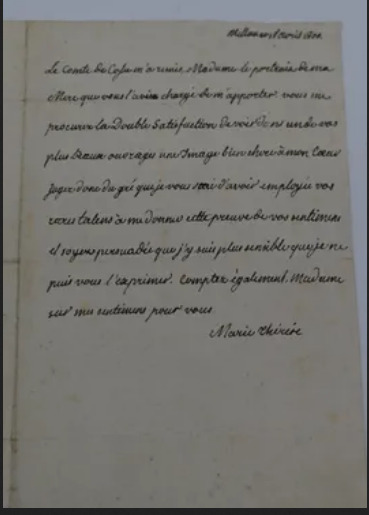 Le Comte de Cossé m'a remis, Madame le portrait de ma
Mere que vous l'aviez chargé de m'apporter. vous me
procurez la Double Satisfaction de voir dans un de vos
plus Beaux ouvrages une Image bien chere à mon Cœur
jugez donc du gré que je vous sai d'avoir employée vos
rares talens à me donner cette preuve de vos sentimens
et soyez persuadée que j'y suis plus sensible que je ne
puis vous l'exprimer. Comptez également, Madame
sur mes sentimens pour vous.
Marie Thérèse